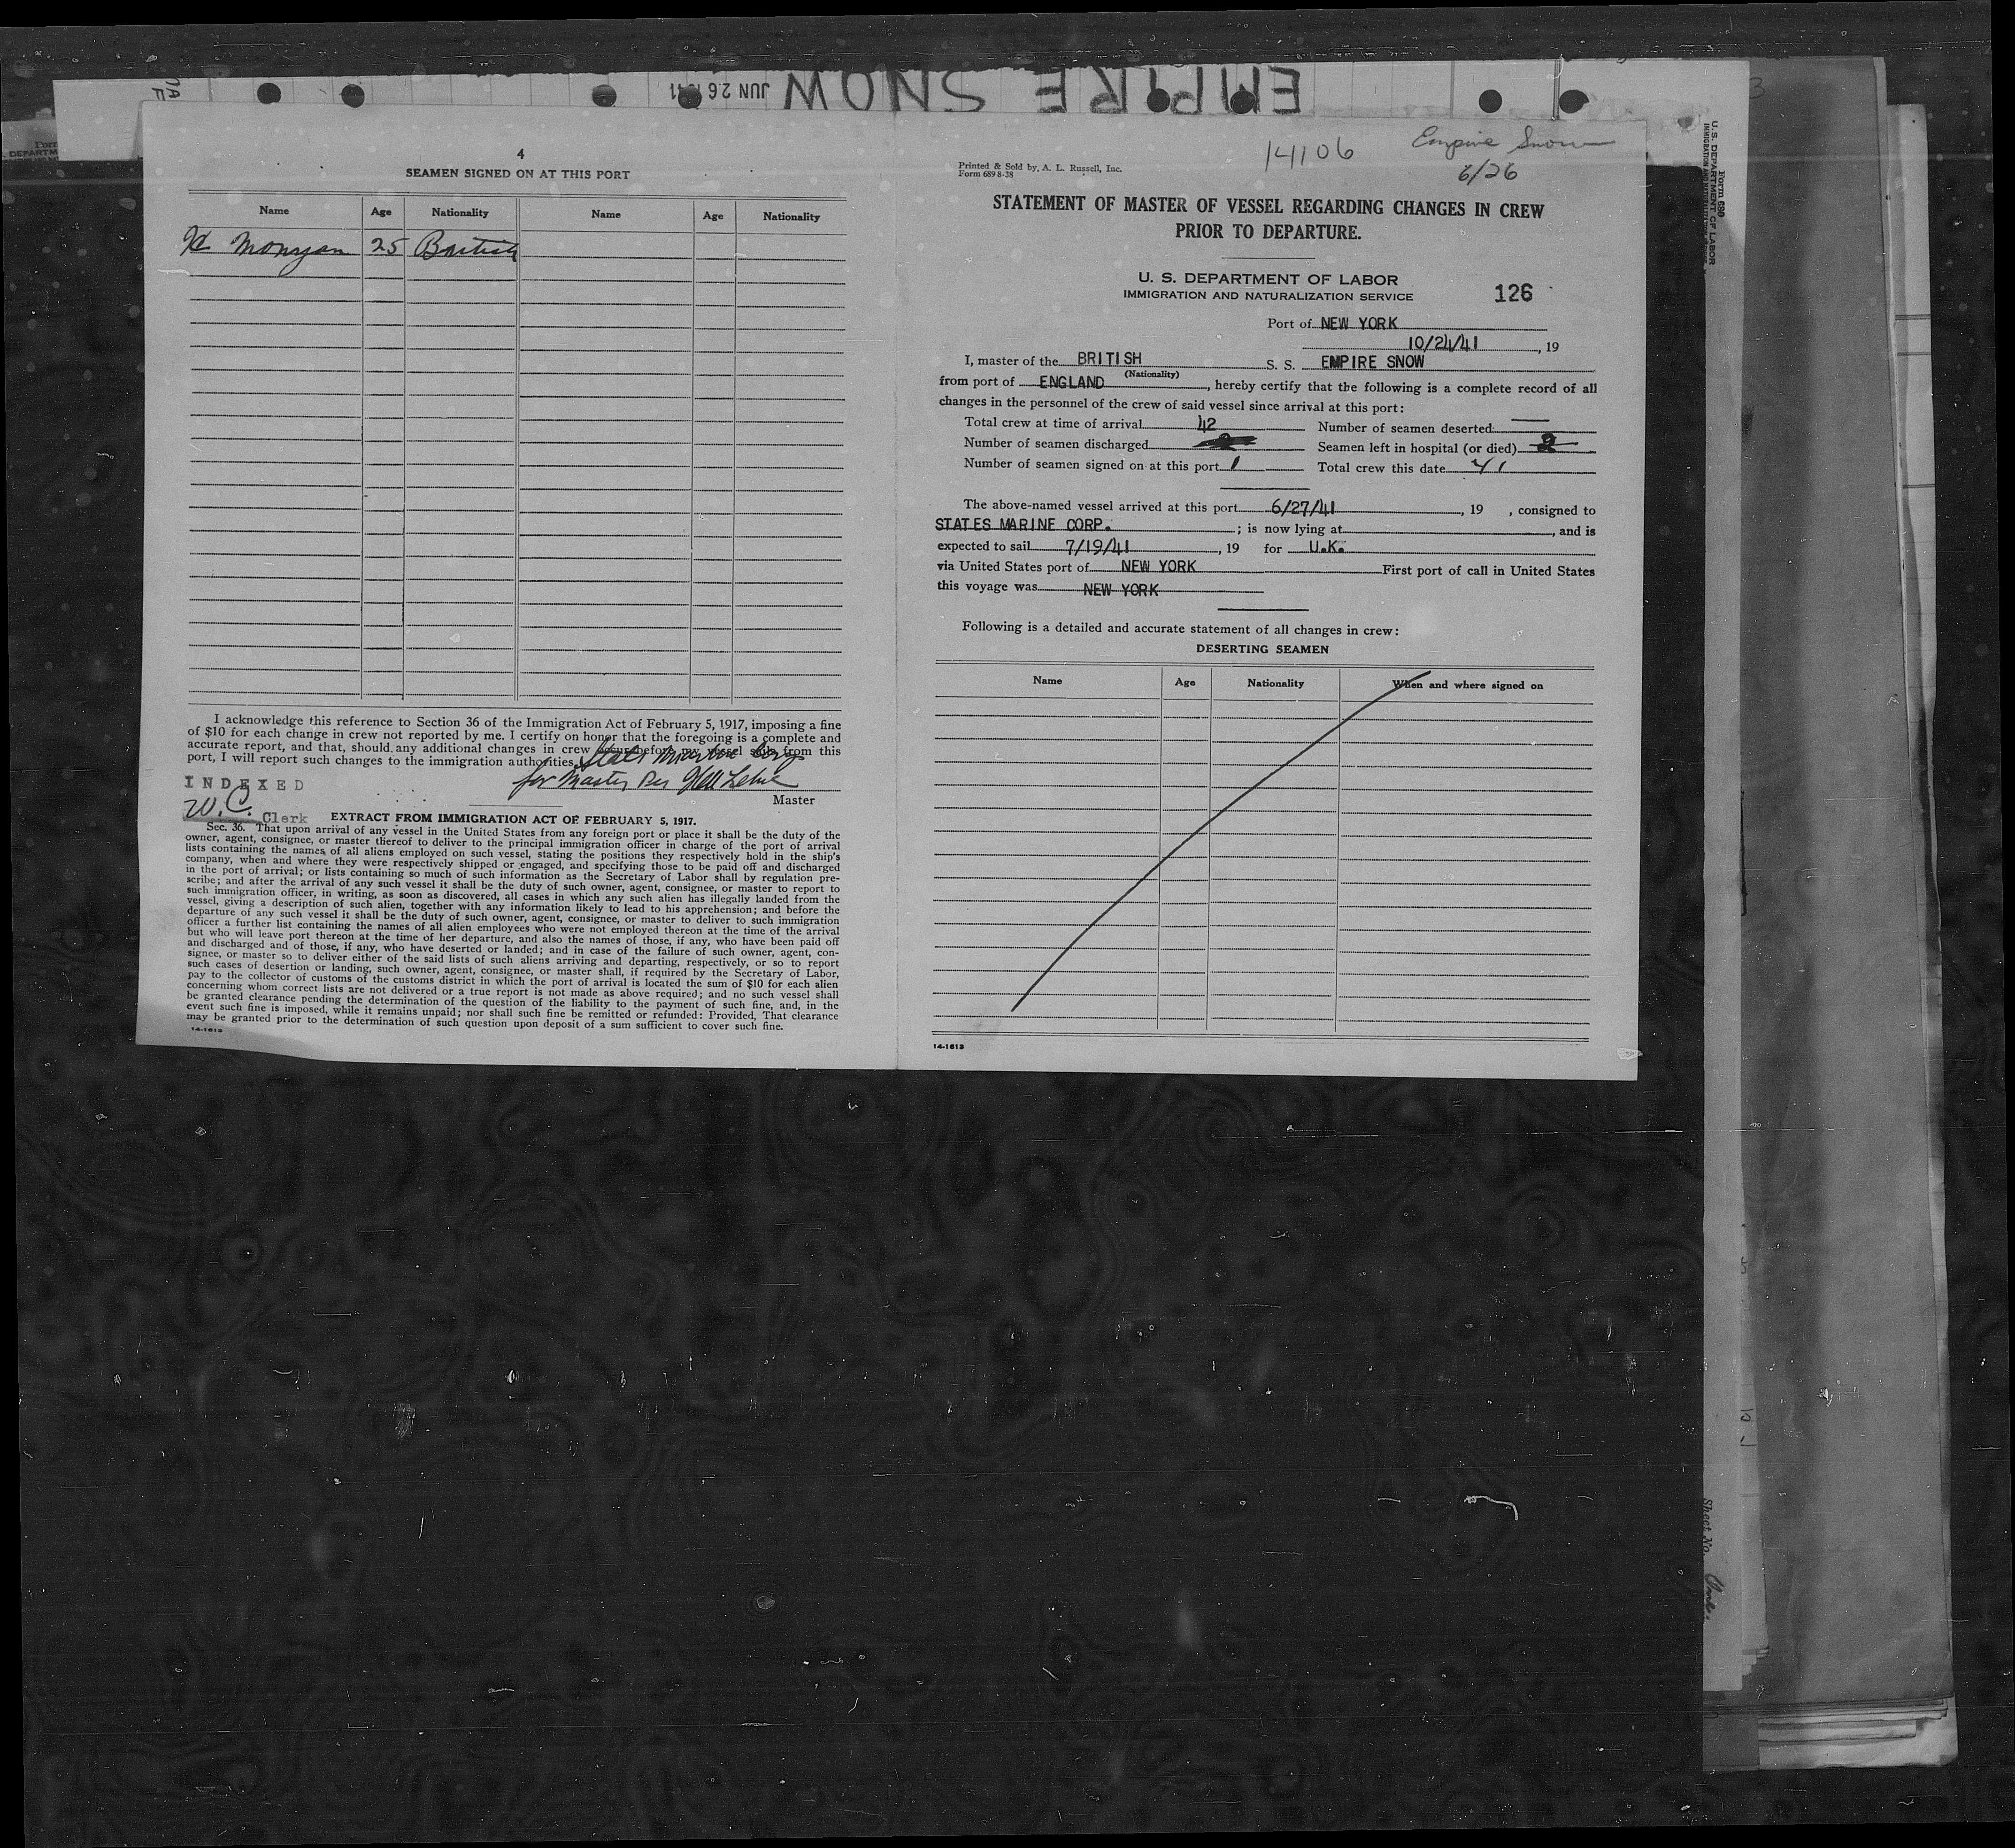 EMPIRE SNOW
JUN 26 1941
4
SEAMEN SIGNED ON AT THIS PORT
Name Age Nationality Name Age Nationality
25 British
I acknowledge this reference to Section 36 of the Immigration Act of February 5, 1917, imposing a fine
of $10 for each change in crew not reported by me. I certify on honor that the foregoing is a complete and
accurate report, and that, should any additional changes in crew occur before my vessel sails from this
port, I will report such changes to the immigration authorities.
States Marine Corp
for Master Per
Master
INDEXED
W.C. Clerk
EXTRACT FROM IMMIGRATION ACT OF FEBRUARY 5, 1917.
Sec. 36. That upon arrival of any vessel in the United States from any foreign port or place it shall be the duty of the
owner, agent, consignee, or master thereof to deliver to the principal immigration officer in charge of the port of arrival
lists containing the names of all aliens employed on such vessel, stating the positions they respectively hold in the ship's
company, when and where they were respectively shipped or engaged, and specifying those to be paid off and discharged
in the port of arrival; or lists containing so much of such information as the Secretary of Labor shall by regulation pre-
scribe; and after the arrival of any such vessel it shall be the duty of such owner, agent, consignee, or master to report to
such immigration officer, in writing, as soon as discovered, all cases in which any such alien has illegally landed from the
vessel, giving a description of such alien, together with any information likely to lead to his apprehension; and before the
departure of any such vessel it shall be the duty of such owner, agent, consignee, or master to deliver to such immigration
officer a further list containing the names of all alien employees who were not employed thereon at the time of the arrival
but who will leave port thereon at the time of her departure, and also the names of those, if any, who have been paid off
and discharged and of those, if any, who have deserted or landed; and in case of the failure of such owner, agent, con-
signee, or master so to deliver either of the said lists of such aliens arriving and departing, respectively, or so to report
such cases of desertion or landing, such owner, agent, consignee, or master shall, if required by the Secretary of Labor,
pay to the collector of customs of the customs district in which the port of arrival is located the sum of $10 for each alien
concerning whom correct lists are not delivered or a true report is not made as above required; and no such vessel shall
be granted clearance pending the determination of the question of the liability to the payment of such fine, and, in the
event such fine is imposed, while it remains unpaid; nor shall such fine be remitted or refunded: Provided, That clearance
may be granted prior to the determination of such question upon deposit of a sum sufficient to cover such fine.
14-1613
Printed & Sold by, A. L. Russell, Inc.
Form 689 8-38
14106 Empire Snow
6/26
STATEMENT OF MASTER OF VESSEL REGARDING CHANGES IN CREW
PRIOR TO DEPARTURE.
U. S. DEPARTMENT OF LABOR
IMMIGRATION AND NATURALIZATION SERVICE
126
Port of NEW YORK
10/24/41, 19
I, master of the BRITISH S. S. EMPIRE SNOW
(Nationality)
from port of ENGLAND, hereby certify that the following is a complete record of all
changes in the personnel of the crew of said vessel since arrival at this port:
Total crew at time of arrival 42 Number of seamen deserted —
Number of seamen discharged Seamen left in hospital (or died) 2
Number of seamen signed on at this port 1 Total crew this date 41
The above-named vessel arrived at this port 6/27/41, 19 , consigned to
STATES MARINE CORP. ; is now lying at , and is
expected to sail 7/19/41, 19 for U.K.
via United States port of NEW YORK First port of call in United States
this voyage was NEW YORK
Following is a detailed and accurate statement of all changes in crew:
DESERTING SEAMEN
Name Age Nationality When and where signed on
14-1613
Form 689
U. S. DEPARTMENT OF LABOR
Sheet No.